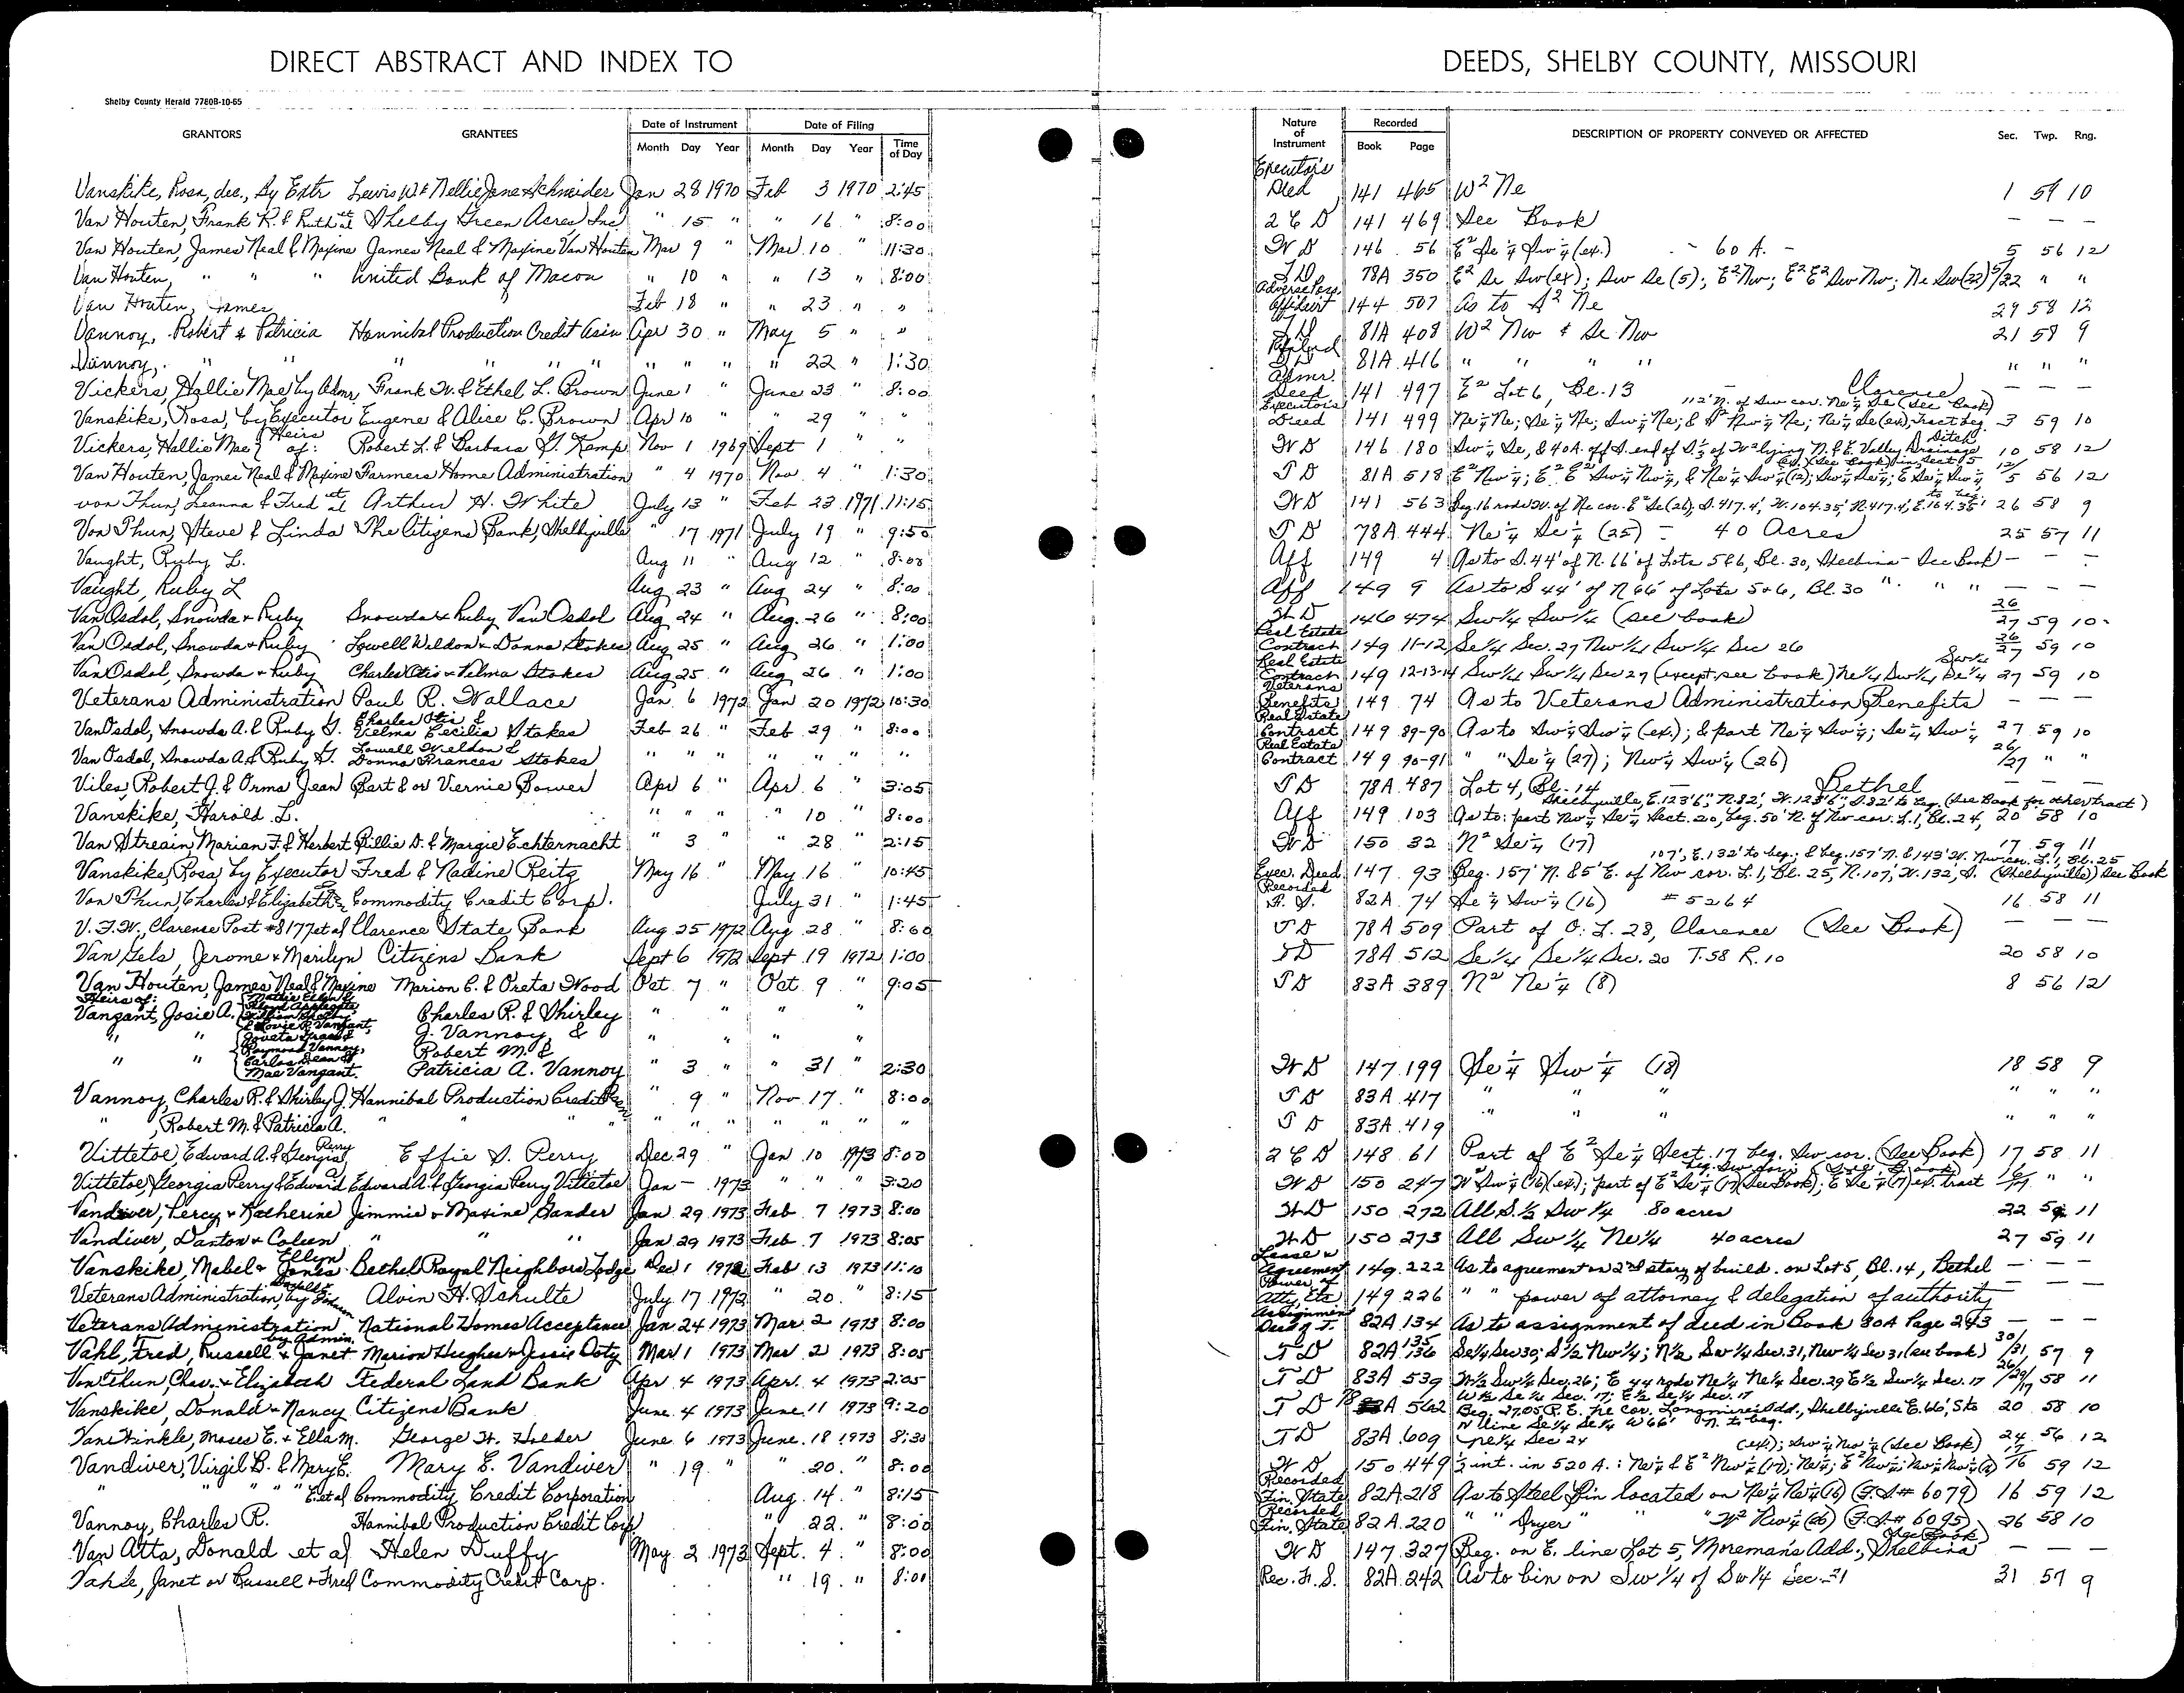 DIRECT ABSTRACT AND INDEX TO DEEDS, SHELBY COUNTY, MISSOURI
Shelby County Herald 7780B-10-65
GRANTORS GRANTEES Date of Instrument Date of Filing Nature of Instrument Recorded DESCRIPTION OF PROPERTY CONVEYED OR AFFECTED Sec. Twp. Rng.
Month Day Year Month Day Year Time of Day Book Page
Vanskike, Rosa, dec., By Extr Lewis W & Nellie Jane Schneider Jan 28 1970 Feb 3 1970 2:45 Executor's Deed 141 465 W² Ne 1 59 10
Van Houten, Frank R. & Ruth et al Shelby Green Acres, Inc " 15 " " 16 " 8:00 2 C D 141 469 See Book — — —
Van Houten, James Neal & Maxine James Neal & Maxine Van Houten Mar 9 " Mar 10 " 11:30 W D 146 56 E² Se ¼ Sw ¼ (ex.) - 60 A. - 5 56 12
Van Houten, " " " United Bank of Macon " 10 " " 13 " 8:00 T D 78A 350 E² Se Sw (ex); Sw Se (5); E² Nw; E² E² Sw Nw; Ne Sw (22) 5/22 " "
Van Houten, James Feb 18 " " 23 " " Adverse Poss. Affidavit 144 507 As to S² Ne 29 58 12
Vannoy, Robert & Patricia Hannibal Production Credit Assn Apr 30 " May 5 " " T D 81A 408 W² Nw & Se Nw 21 58 9
Vannoy, " " " " " " " " " " 22 " 1:30 T D 81A 416 " " " " " " "
Vickers, Hallie Mae, by Admr. Frank W. & Ethel L. Brown June 1 " June 23 " 8:00 Admr. Deed 141 497 E² Lot 6, Bl. 13 - Clarence — — —
112' N. of Sw cor. Ne ¼ Se (See Book)
Vanskike, Rosa, by Executor Eugene & Alice C. Brown Apr 10 " " 29 " " Executor's Deed 141 499 Ne ¼ Ne; Se ¼ Ne; Sw ¼ Ne; & S² Nw ¼ Ne; Ne ¼ Se (ex), Tract beg. 3 59 10
Vickers, Hallie Mae, Heirs of: Robert L. & Barbara G. Kamp Nov 1 1969 Sept 1 " " W D 146 180 Sw ¼ Se, & 40 A. off S. end of S. ½ of W² lying N. & E. Valley Drainage Ditch 10 58 12
Van Houten, James Neal & Maxine Farmers Home Administration " 4 1970 Nov. 4 " 1:30 T D 81A 518 E² Nw ¼; E² E² Sw ¼ Nw ¼, & Ne ¼ Sw ¼ (12); Sw ¼ Se ¼; E² Se ¼ Sw ¼ 12/5 56 12
von Thun, Leanna & Fred et al Arthur H. White July 13 " Feb 23 1971 11:15 W D 141 563 Beg. 16 rods W. of Ne cor. E² Se (26), S. 417.4', W. 104.35', N. 417.4', E. 104.35' to beg. 26 58 9
Von Thun, Steve & Linda The Citizens Bank, Shelbyville " 17 1971 July 19 " 9:50 T D 78A 444 Ne ¼ Se ¼ (25) - 40 Acres 25 57 11
Vaught, Ruby L. Aug 11 " Aug 12 " 8:00 Aff 149 4 As to S. 44' of N. 66' of Lots 5 & 6, Bl. 30, Shelbina - See Book — — —
Vaught, Ruby L Aug 23 " Aug 24 " 8:00 Aff 149 9 As to S 44' of N 66' of Lots 5 & 6, Bl. 30 " " " — — —
Van Osdol, Snowda & Ruby Snowda & Ruby Van Osdol Aug 24 " Aug. 26 " 8:00 W D 146 474 Sw¼ Sw¼ (see book) 26/27 59 10
Van Osdol, Snowda & Ruby Lowell Weldon & Donna Stokes Aug 25 " Aug 26 " 1:00 Real Estate Contract 149 11-12 Se¼ Sec. 27 Nw¼ Sw¼ Sec 26 26/27 59 10
Van Osdol, Snowda & Ruby Charles Otis & Velma Stokes Aug 25 " Aug 26 " 1:00 Real Estate Contract 149 12-13-14 Sw¼ Sw¼ Sec 27 (except see book) Ne¼ Sw¼ Se¼ Sw¼ 27 59 10
Veterans Administration Paul R. Wallace Jan. 6 1972 Jan 20 1972 10:30 Veterans Benefits 149 74 As to Veterans Administration Benefits — —
Van Osdol, Snowda A. & Ruby G. Charles Otis & Velma Cecilia Stokes Feb 26 " Feb 29 " 8:00 Real Estate Contract 149 89-90 As to Sw ¼ Sw ¼ (ex.); & part Ne ¼ Sw ¼; Se ¼ Sw ¼ 27 59 10
Van Osdol, Snowda A. & Ruby G. Lowell Weldon & Donna Frances Stokes " " " " " " " Real Estate Contract 149 90-91 " " Se ¼ (27); Nw ¼ Sw ¼ (26) 26/27 " "
Viles, Robert J. & Orma Jean Bart & or Viernie Bower Apr 6 " Apr. 6 " 3:05 T D 78A 487 Lot 4, Bl. 14 Bethel — — —
Shelbyville, E. 123'6", N. 82', W. 123'6", S. 82' to beg. (See Book for other tract)
Vanskike, Harold L. " " " " 10 " 8:00 Aff 149 103 As to: part Nw ¼ Se ¼ Sect. 20, beg. 50' N. of Nw cor. L. 1, Bl. 24, 20 58 10
Van Streain, Marian F. & Herbert Billie D. & Margie Echternacht " 3 " " 28 " 2:15 W D 150 32 N² Se ¼ (17) 17 59 11
107', E. 132' to beg.; & beg. 157' N. & 143' W. Nw cor. L. 1, Bl. 25
Vanskike, Rosa, by Executor Fred & Nadine Reitz May 16 " May 16 " 10:45 Exec. Deed 147 93 Beg. 157' N. & 5' E. of Nw cor. L. 1, Bl. 25, N. 107, W. 132', S. (Shelbyville) See Book
Von Thun, Charles & Elizabeth Commodity Credit Corp. July 31 " 1:45 Recorded F. S. 82A 74 Se ¼ Sw ¼ (16) #5264 16 58 11
V. F. W., Clarence Post #8177 et al Clarence State Bank Aug 25 1972 Aug 28 " 8:00 T D 78A 509 Part of O. L. 28, Clarence (See Book) — — —
Van Gels, Jerome & Marilyn Citizens Bank Sept 6 1972 Sept 19 1972 1:00 T D 78A 512 Se¼ Se¼ Sec. 20 T. 58 R. 10 20 58 10
Van Houten, James Neal & Maxine Marion C. & Oreta Wood Oct. 7 " Oct 9 " 9:05 T D 83A 389 N² Ne ¼ (8) 8 56 12
Heirs of: Vangant, Josie A. Charles R. & Shirley " " " "
" " J. Vannoy & " " " "
Robert M. &
" " Mae Vangant. Patricia A. Vannoy " 3 " " 31 " 2:30 W D 147 199 Se ¼ Sw ¼ (18) 18 58 9
Vannoy, Charles R. & Shirley J. Hannibal Production Credit Assn " 9 " Nov. 17 " 8:00 T D 83A 417 " " " " " "
" , Robert M. & Patricia A. " " " " " " " " " " T D 83A 419 " " " " " "
Vittetoe, Edward A. & Georgia Perry Effie S. Perry Dec 29 " Jan 10 1973 8:00 2 C D 148 61 Part of E² Se ¼ Sect. 17 beg. Sw cor. (See Book) 17 58 11
Vittetoe, Georgia Perry & Edward A. Edward A. & Georgia Perry Vittetoe Jan — 1973 " " " 3:20 W D 150 247 W² Sw ¼ (16) (ex); part of E² Se ¼ (17) (See Book); E² Se ¼ (17) ex. tract 16/17 " "
Vandiver, Percy & Katherine Jimmie & Maxine Gander Jan 29 1973 Feb 7 1973 8:00 W D 150 272 All S. ½ Sw ¼ 80 acres 22 59 11
Vandiver, Danton & Coleen " " " Jan 29 1973 Feb. 7 1973 8:05 W D 150 273 All Sw ¼ Ne ¼ 40 acres 27 59 11
Vanskike, Mabel & Ellen Jones Bethel Royal Neighbors Lodge Dec 1 1972 Feb 13 1973 11:10 Lease & Agreement 149 222 As to agreement on 2nd story of build. on Lot 5, Bl. 14, Bethel — — —
Veterans Administration, by Donald Alvin H. Schulte July 17 1972 " 20 " 8:15 Power of Atty, Etc 149 226 " " power of attorney & delegation of authority — — —
Veterans Administration by Admin. National Homes Acceptance Jan 24 1973 Mar. 2 1973 8:00 Assignment Deed of T. 82A 134 As to assignment of deed in Book 80A Page 243 — — —
Vahl, Fred, Russell & Janet Marion Hughes & Jessie Doty Mar 1 1973 Mar 2 1973 8:05 T D 82A 135 136 Se¼ Sec 30; S½ Nw¼; N½ Sw¼ Sec. 31, Nw¼ Sec 31 (see book) 30/31 57 9
Von Thun, Chas. & Elizabeth Federal Land Bank Apr 4 1973 Apr. 4 1973 2:05 T D 83A 539 W½ Sw¼ Sec. 26; E 44 rods Ne¼ Ne¼ Sec. 29 E½ Sw¼ Sec. 17 26/29/17 58 11
W½ Se¼ Sec. 17; E½ Se¼ Sec. 17
Vanskike, Donald & Nancy Citizens Bank June 4 1973 June 11 1973 9:20 T D 78A 562 Beg. 2705 ft. E. ne cor. Longmires Add., Shelbyville E. 66', S to 20 58 10
N line Se¼ Se¼ W 66' N. to beg.
Van Winkle, Moses E. & Ella M. George W. Holder June 6 1973 June. 18 1973 8:30 T D 83A 609 Ne¼ Sec 24 24 56 12
(ex.); Sw ¼ Nw ¼ (See Book)
Vandiver, Virgil B. & Mary E. Mary E. Vandiver " 19 " " 20 " 8:00 W D 150 449 ½ int. in 520 A.: Ne ¼ & E² Nw ¼ (17); Ne ¼; E² Nw ¼; Nw ¼ Nw ¼ 17/16 59 12
" " " " E. et al Commodity Credit Corporation Aug. 14 " 8:15 Recorded Fin. State 82A 218 As to Steel Bin located on Ne ¼ Ne ¼ (16) (F. S. # 6079) 16 59 12
Vannoy, Charles R. Hannibal Production Credit Corp " 22 " 8:00 Recorded Fin. State 82A 220 " " Dryer " " W² Nw ¼ (26) (F. S. # 6095) 26 58 10
Van Atta, Donald et al Helen Duffy May. 2 1973 Sept. 4 " 8:00 W D 147 327 Beg. on E. line Lot 5, Moreman's Add., Shelbina (See Book) — — —
Vahle, Janet or Russell & Fred Commodity Credit Corp. " 19 " 8:01 Rec. F. S. 82A 242 As to bin on Sw ¼ of Sw ¼ Sec. 31 31 57 9